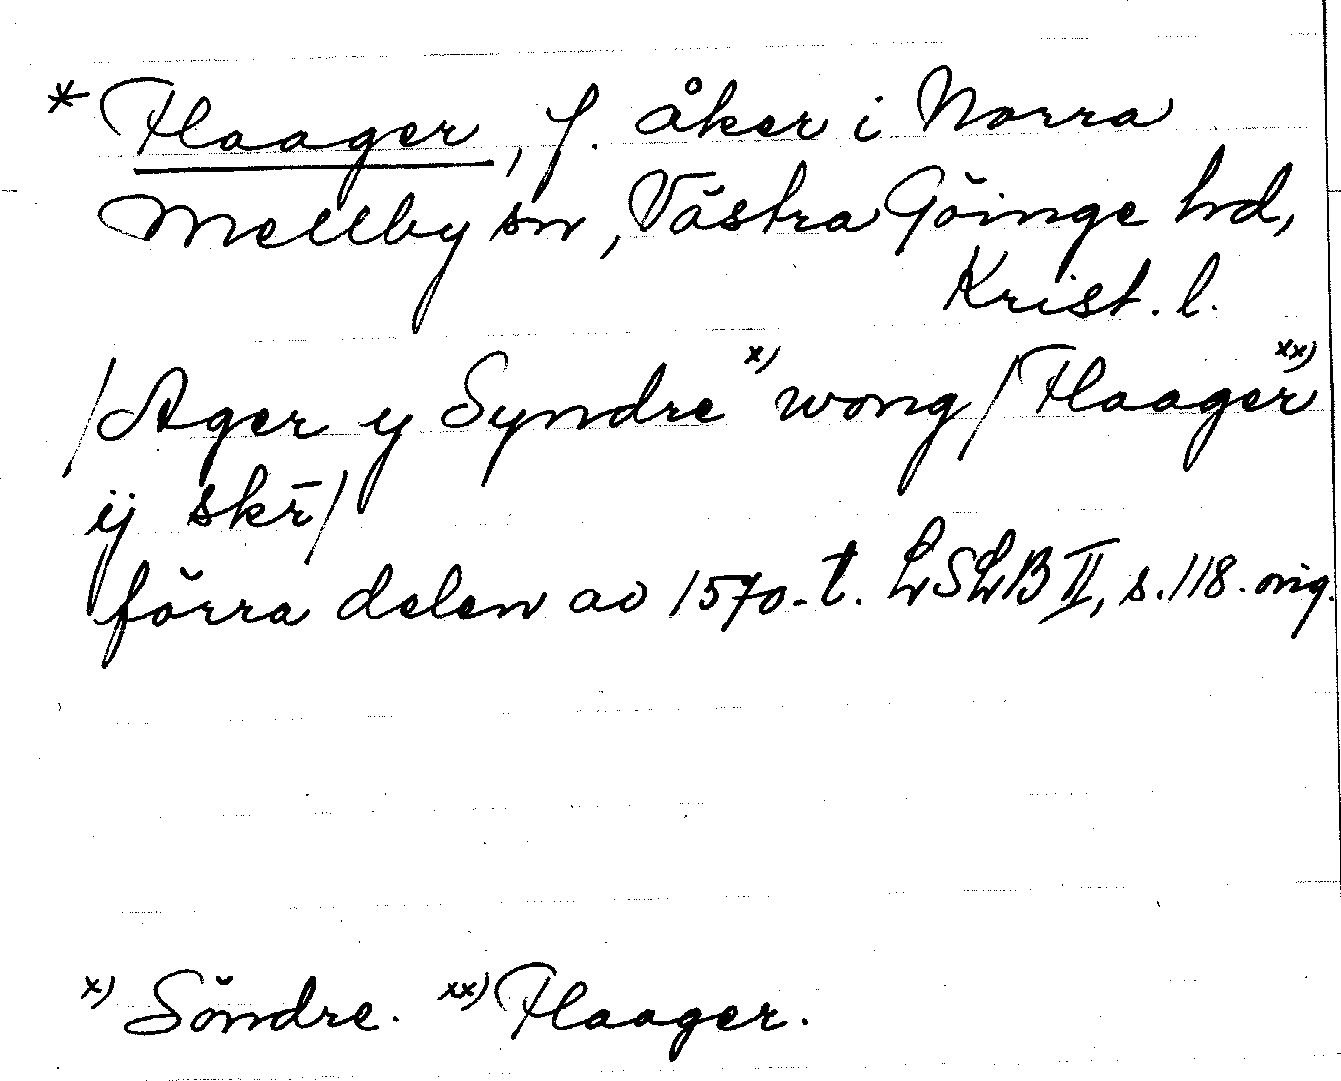 * Flaager, f. åker i Norra
Mellby sn, Västra Göinge hd,
Krist. l.
/Ager y Syndre x) wong/Flaager xx)
ij skr̄/
förra delen av 1570-t. LSLB II, s. 118. orig.
x) Söndre. xx) Flaager.